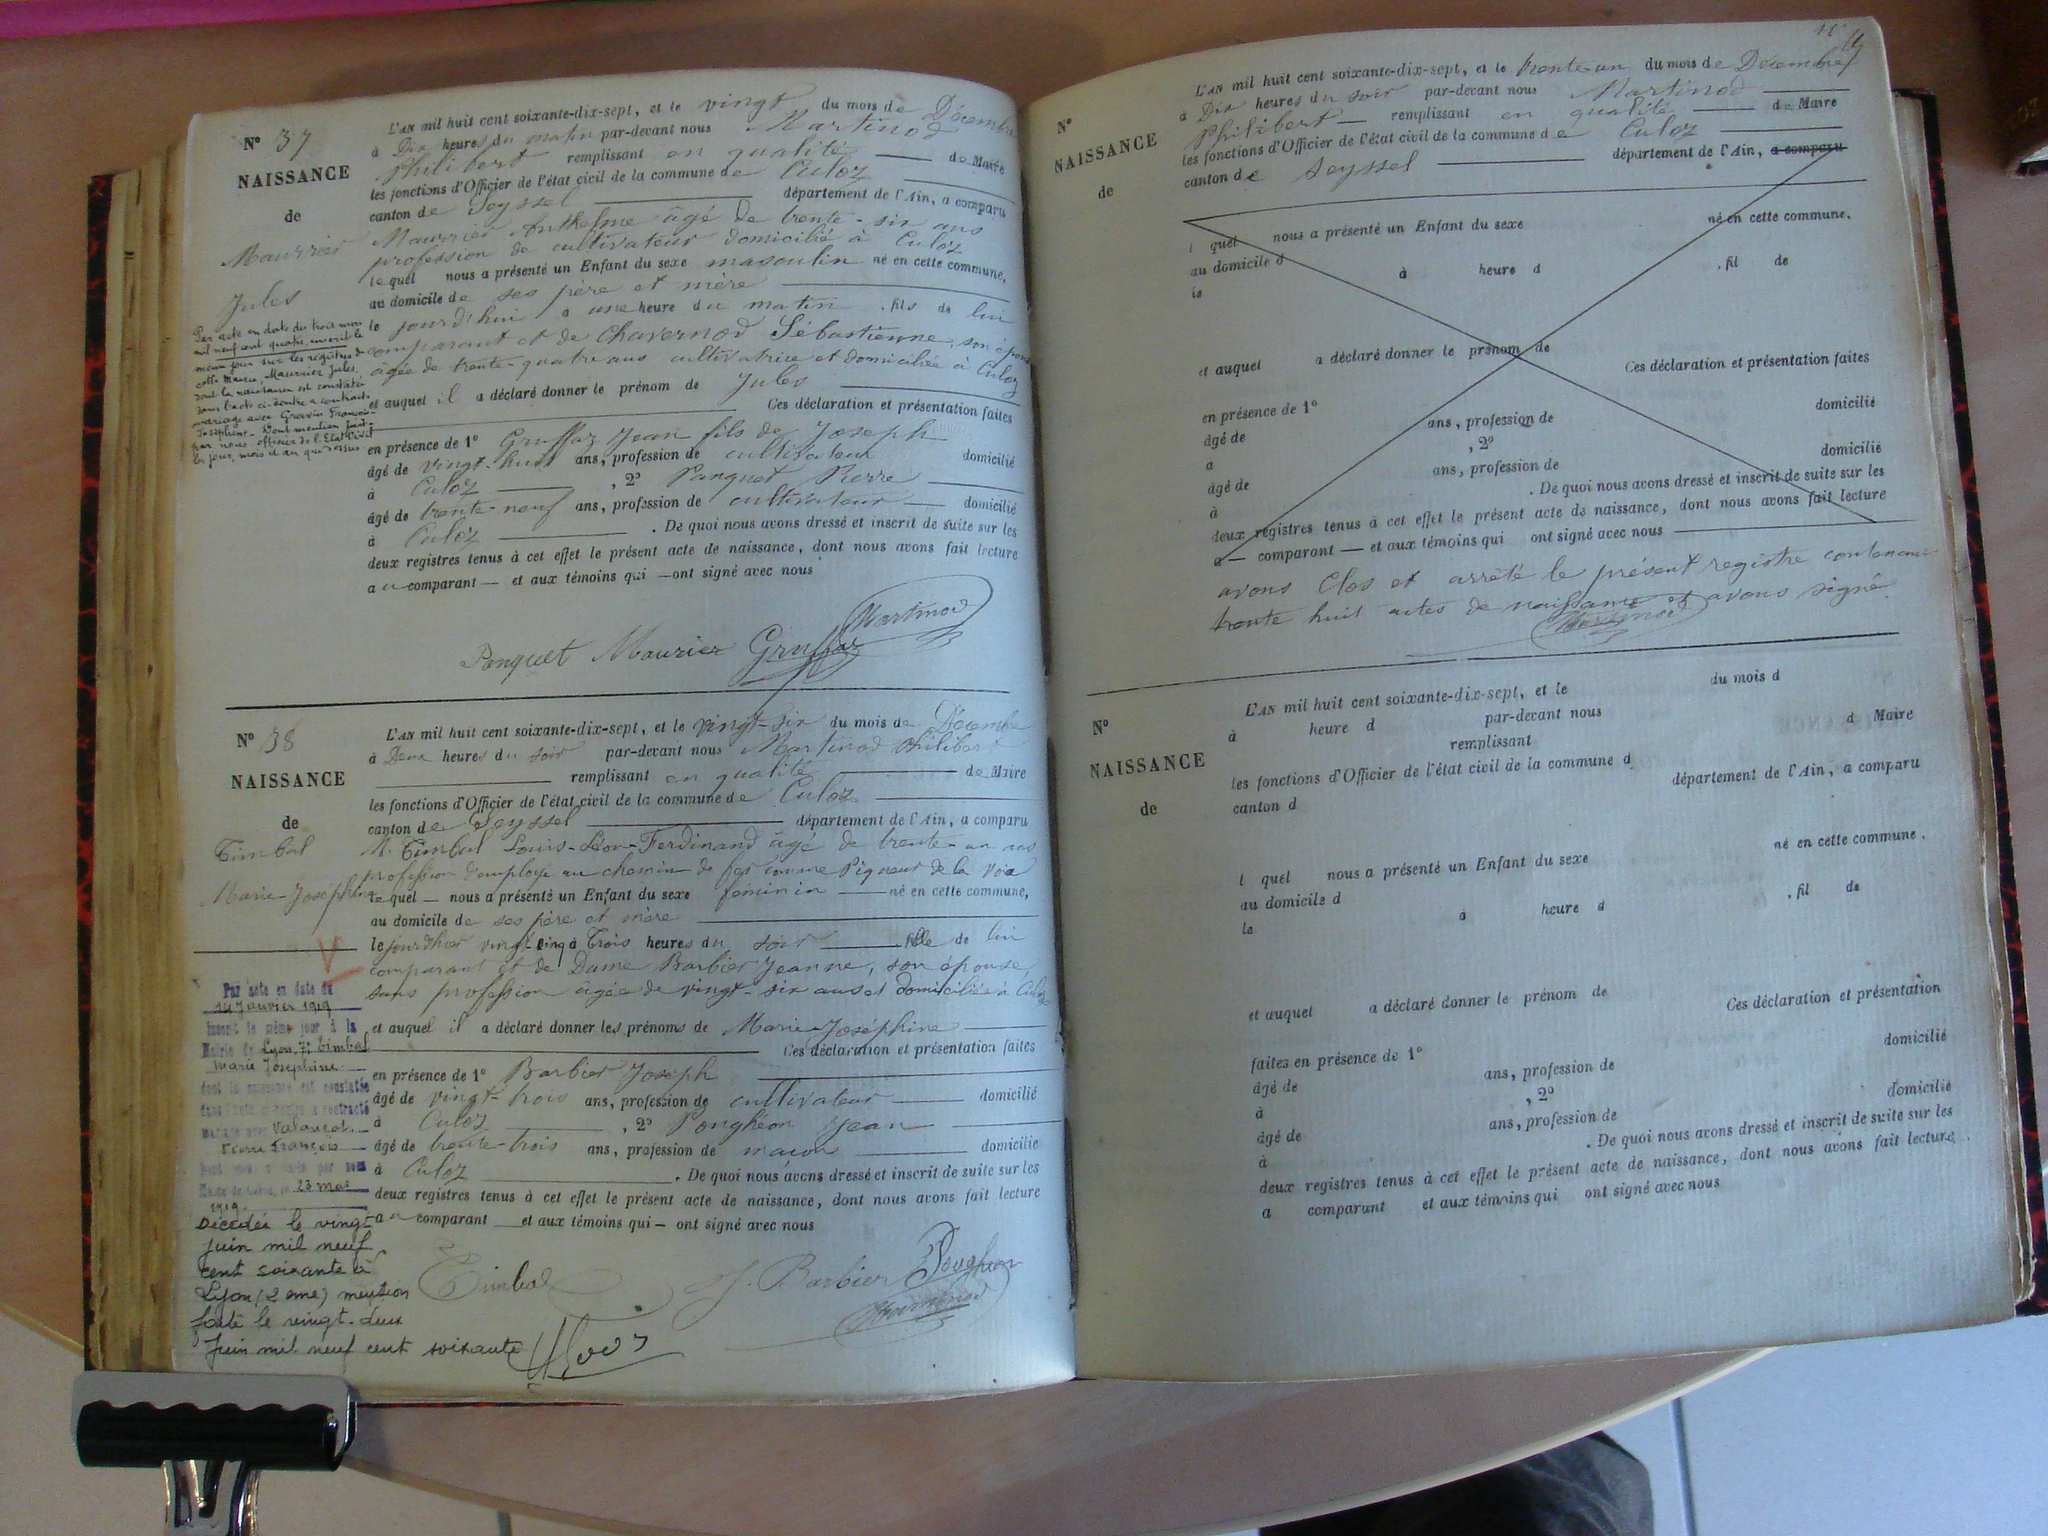 N° 37
NAISSANCE
de
Maurrier
Jules
Par acte en date du trois mars
mil neuf cent quatre, inscrit le
même jour sur les registres de
cette Mairie, Maurrier Jules,
dont la naissance est constatée
dans l'acte ci-contre a contracté
mariage avec
Joséphine. Dont mention faite
par nous officier de l'Etat civil
les jour, mois et an que dessus
L'AN mil huit cent soixante-dix-sept, et le vingt du mois de Décembre
à Dix heures du matin par-devant nous Martinod
Philibert remplissant en qualité de Maire
les fonctions d'Officier de l'état civil de la commune de Culoz
canton de Seyssel département de l'Ain, a comparu
Maurrier Anthelme âgé de trente-six ans
profession de cultivateur domicilié à Culoz
lequel nous a présenté un Enfant du sexe masculin né en cette commune,
au domicile de ses père et mère
le jourd'hui à une heure du matin , fils de lui
comparant et de Chavernod Sébastienne, son épouse
âgée de trente-quatre ans cultivatrice et domiciliée à Culoz
et auquel il a déclaré donner le prénom de Jules
Ces déclaration et présentation faites
en présence de 1° Gruffaz Jean fils de Joseph
âgé de vingt-huit ans, profession de cultivateur domicilié
à Culoz , 2° Panquet Pierre
âgé de trente-neuf ans, profession de cultivateur domicilié
à Culoz . De quoi nous avons dressé et inscrit de suite sur les
deux registres tenus à cet effet le présent acte de naissance, dont nous avons fait lecture
au comparant — et aux témoins qui — ont signé avec nous
Martinod
Panquet Maurier Gruffaz
N° 38
NAISSANCE
de
Timbal
Marie Joséphine
V
Par acte en date du
14 Janvier 1919
inscrit le même jour à la
Mairie de Lyon, 7e Timbal
Marie Josephine
dont la naissance est constatée
dans l'acte ci-contre a contracté
mariage avec Valançot
Pierre François
23 mai
1919
Décédée le vingt
juin mil neuf
cent soixante à
Lyon (2 ème) mention
faite le vingt-deux
Juin mil neuf cent soixante
L'AN mil huit cent soixante-dix-sept, et le vingt-six du mois de Décembre
à Deux heures du soir par-devant nous Martinod Philibert
remplissant en qualité de Maire
les fonctions d'Officier de l'état civil de la commune de Culoz
canton de Seyssel département de l'Ain, a comparu
M. Timbal Louis-Léon-Ferdinand âgé de trente-un ans
profession d'employé au chemin de fer comme Piqueur de la Voie
lequel — nous a présenté un Enfant du sexe féminin — né en cette commune,
au domicile de ses père et mère
le jourd'hier vingt cinq à Trois heures du soir fille de lui
comparant et de Dame Barbier Jeanne, son épouse,
sans profession âgée de vingt-six ans et domiciliée à Culoz
et auquel il a déclaré donner les prénoms de Marie-Joséphine
Ces déclaration et présentation faites
en présence de 1° Barbier Joseph
âgé de vingt-trois ans, profession de cultivateur domicilié
à Culoz , 2° Ponghéon Jean
âgé de trente-trois ans, profession de maçon domicilié
à Culoz . De quoi nous avons dressé et inscrit de suite sur les
deux registres tenus à cet effet le présent acte de naissance, dont nous avons fait lecture
au comparant — et aux témoins qui — ont signé avec nous
Timbal J. Barbier
Martinod
N°
NAISSANCE
de
L'AN mil huit cent soixante-dix-sept, et le trente-un du mois de Décembre
à Dix heures du soir par-devant nous Martinod
Philibert — remplissant en qualité de Maire
les fonctions d'Officier de l'état civil de la commune de Culoz
canton de Seyssel département de l'Ain, a comparu
l quel nous a présenté un Enfant du sexe né en cette commune.
au domicile d
le à heure d , fil de
et auquel a déclaré donner le prénom de
Ces déclaration et présentation faites
en présence de 1°
âgé de ans, profession de domicilié
à , 2°
âgé de ans, profession de domicilié
à . De quoi nous avons dressé et inscrit de suite sur les
deux registres tenus à cet effet le présent acte de naissance, dont nous avons fait lecture
a — comparant — et aux témoins qui ont signé avec nous
avons Clos et arrêté le présent registre contenant
trente huit actes de naissance et avons signé.
Martinod
N°
NAISSANCE
de
L'AN mil huit cent soixante-dix-sept, et le du mois d
à heure d par-devant nous
remplissant d Maire
les fonctions d'Officier de l'état civil de la commune d
canton d département de l'Ain, a comparu
l quel nous a présenté un Enfant du sexe né en cette commune.
au domicile d
le à heure d , fil de
et auquel a déclaré donner le prénom de
Ces déclaration et présentation
faites en présence de 1°
âgé de ans, profession de domicilié
à , 2°
âgé de ans, profession de domicilié
à . De quoi nous avons dressé et inscrit de suite sur les
deux registres tenus à cet effet le présent acte de naissance, dont nous avons fait lecture
a comparant et aux témoins qui ont signé avec nous